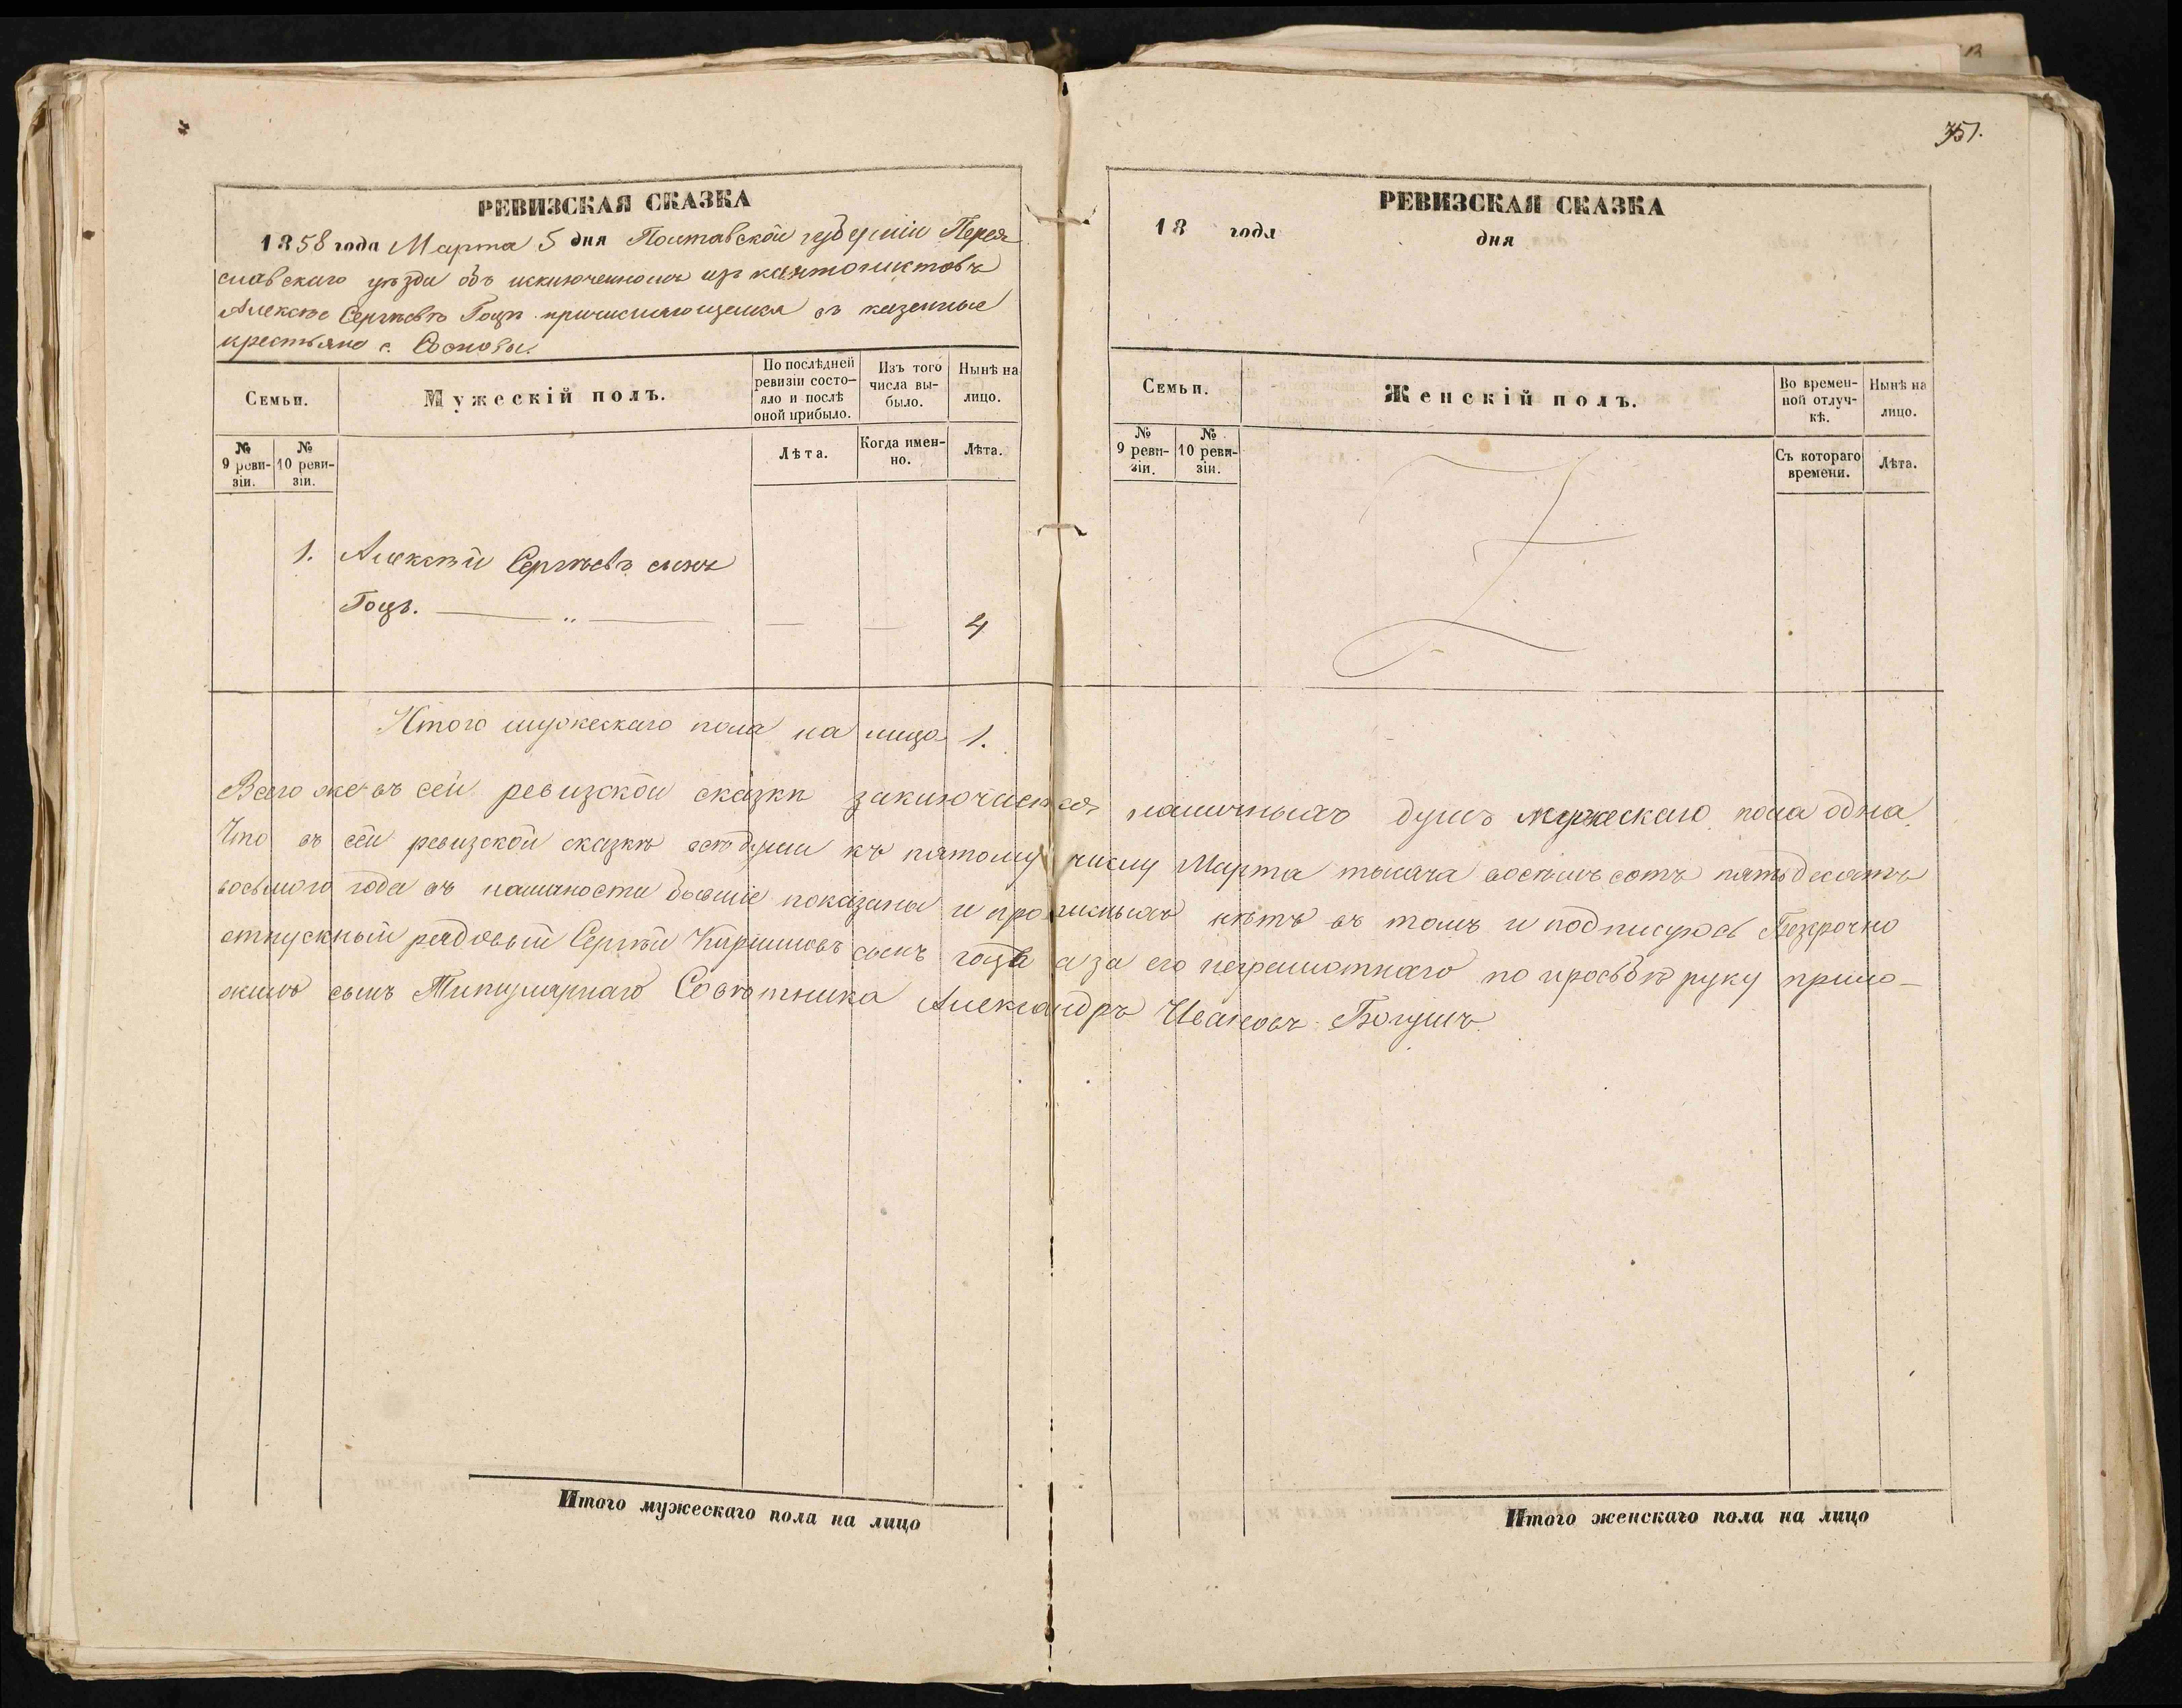 351.
РЕВИЗСКАЯ СКАЗКА
1858 года Марта 5 дня Полтавской губерніи Перея
славскаго уѣзда объ исключенномъ изъ кантонистовъ
Алексѣе Сергѣевѣ Гоцѣ причисляющемся въ казенные
крестьяне с. Сосновы.
Семьи.
Мужескій полъ.
По послѣдней ревизіи состо-
яло и послѣ оной прибыло.
Изъ того числа вы-
было.
Нынѣ на лицо.
№ 9 реви-
зіи.
№ 10 реви-
зіи.
Лѣта.
Когда имен-
но.
Лѣта.
1. Алексѣй Сергѣевъ сынъ
Гоцъ. — „ — — — 4
Итого мужескаго пола на лицо 1.
РЕВИЗСКАЯ СКАЗКА
18 года дня
Семьи.
Женскій полъ.
Во времен-
ной отлуч-
кѣ.
Нынѣ на лицо.
№ 9 реви-
зіи.
№ 10 реви-
зіи.
Съ котораго времени.
Лѣта.
Всего же въ сей ревизской сказки заключается наличныхъ душъ мужескаго пола одна.
Что въ сей ревизской сказкѣ всѣ души къ пятому числу Марта тысяча восѣмъ сотъ пятьдесятъ
восьмого года въ наличности бывшіе показаны и прописныхъ нѣтъ въ томъ и подписуюсь Безсрочно
отпускный рядовый Сергѣй Кириловъ сынъ гоцъ а за его неграмотнаго по прозьбѣ руку прило-
жилъ сынъ Титулярнаго Совѣтника Александръ Ивановъ Богушъ.
Итого мужескаго пола на лицо
Итого женскаго пола на лицо